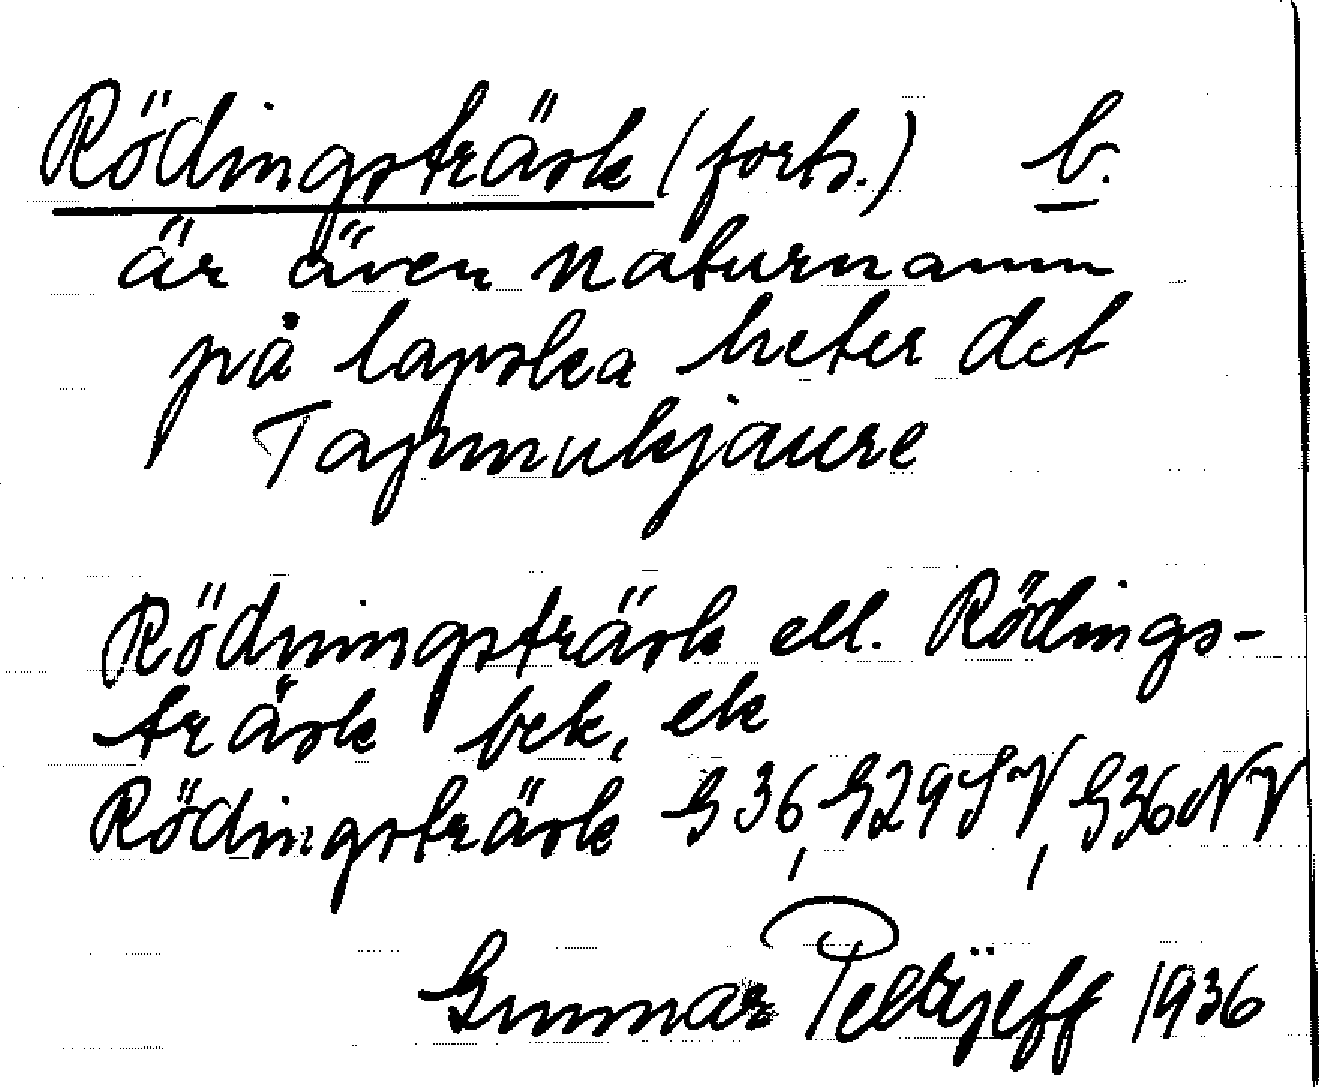 Rödingsträsk (forts.) b.
är även naturnamn
på lapska heter det
Tapmukjaure
Rödningsträsk ell. Rödings-
träsk bek, ek
Rödingsträsk G 36, G29SV, G36NV
Gunnar Pellijeff 1936